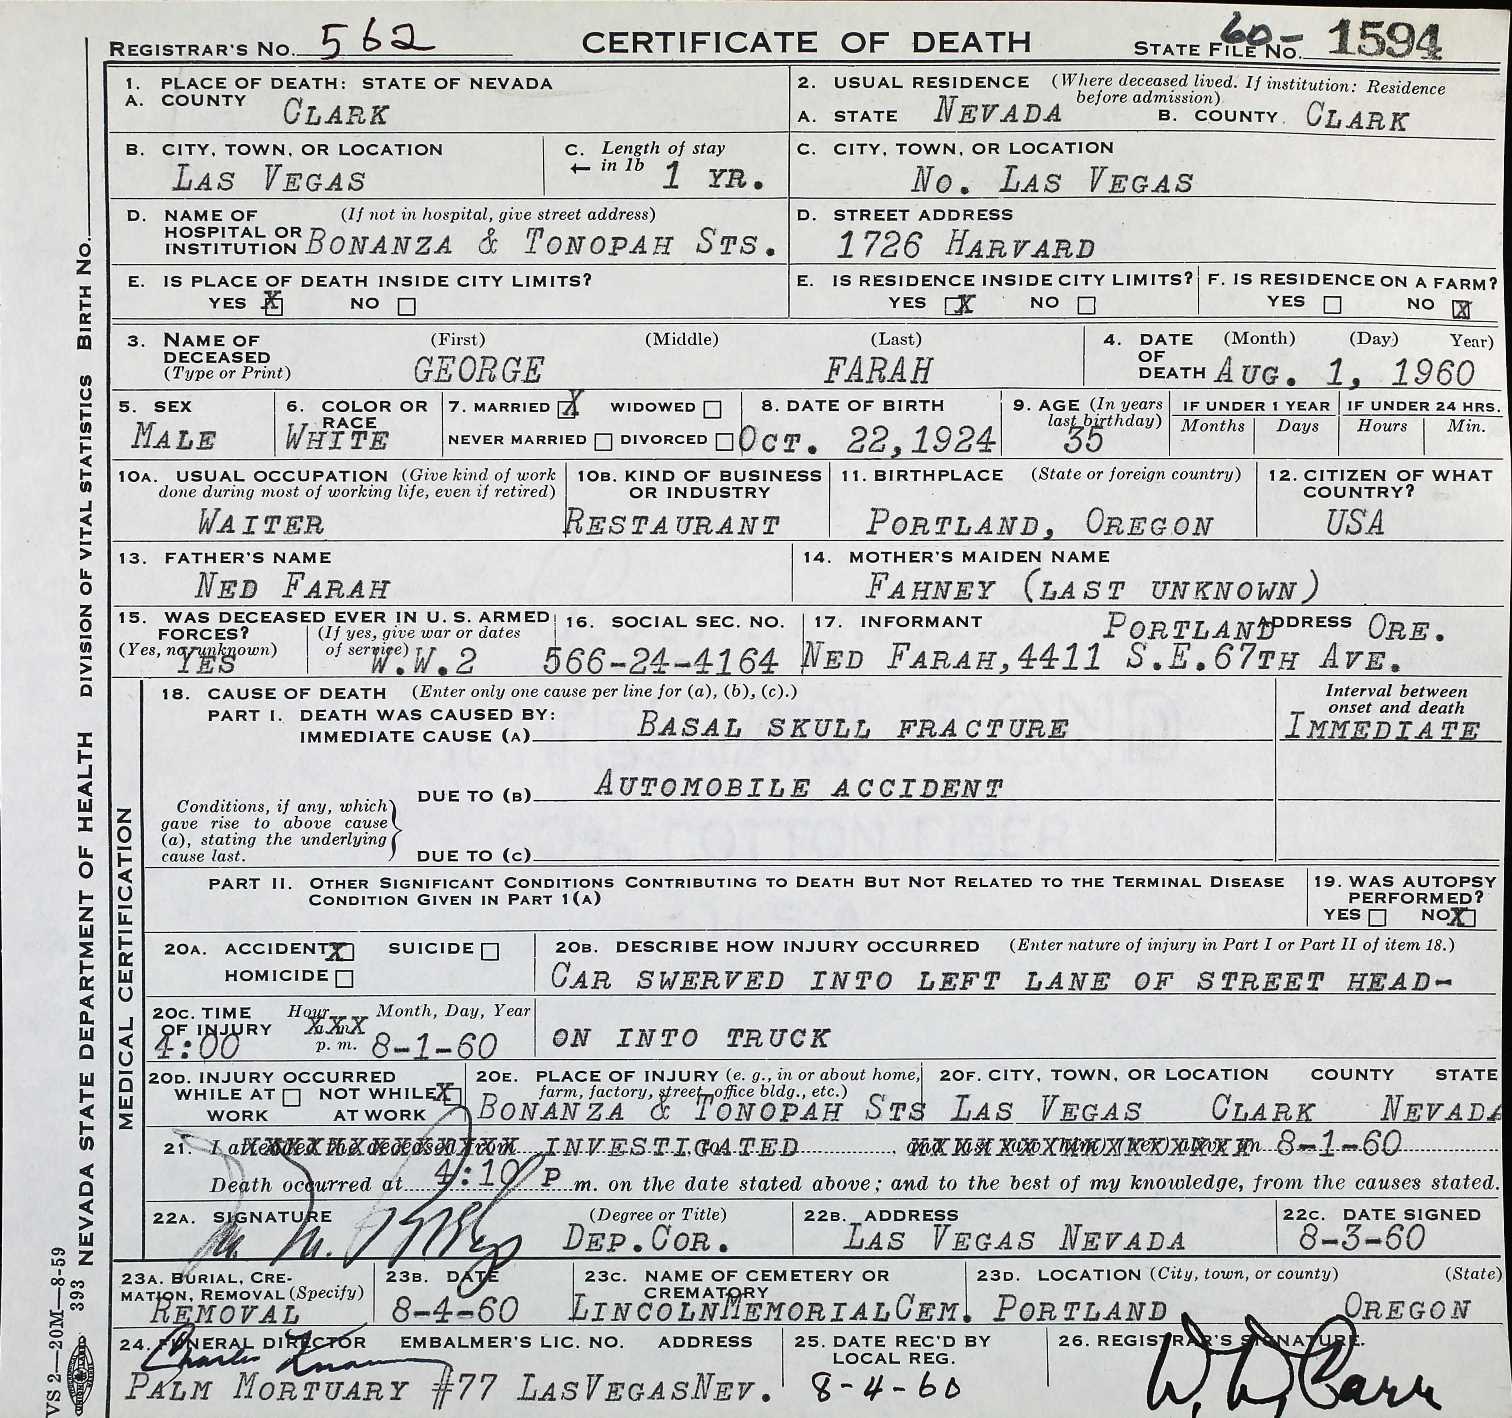 REGISTRAR'S NO. 562 CERTIFICATE OF DEATH STATE FILE NO. 60- 1594
1. PLACE OF DEATH: STATE OF NEVADA
A. COUNTY CLARK
2. USUAL RESIDENCE (Where deceased lived. If institution: Residence before admission)
A. STATE NEVADA B. COUNTY. CLARK
B. CITY, TOWN, OR LOCATION LAS VEGAS
C. Length of stay ← in 1b 1 YR.
C. CITY, TOWN, OR LOCATION NO. LAS VEGAS
D. NAME OF HOSPITAL OR INSTITUTION (If not in hospital, give street address) BONANZA & TONOPAH STS.
D. STREET ADDRESS 1726 HARVARD
E. IS PLACE OF DEATH INSIDE CITY LIMITS?
YES X NO
E. IS RESIDENCE INSIDE CITY LIMITS?
YES X NO
F. IS RESIDENCE ON A FARM?
YES NO X
3. NAME OF DECEASED (Type or Print) (First) (Middle) (Last)
GEORGE FARAH
4. DATE OF DEATH (Month) (Day) Year)
AUG. 1, 1960
5. SEX MALE
6. COLOR OR RACE WHITE
7. MARRIED X WIDOWED
NEVER MARRIED DIVORCED
8. DATE OF BIRTH OCT. 22,1924
9. AGE (In years last birthday) 35
IF UNDER 1 YEAR Months Days
IF UNDER 24 HRS. Hours Min.
10A. USUAL OCCUPATION (Give kind of work done during most of working life, even if retired)
WAITER
10B. KIND OF BUSINESS OR INDUSTRY
RESTAURANT
11. BIRTHPLACE (State or foreign country)
PORTLAND, OREGON
12. CITIZEN OF WHAT COUNTRY?
USA
13. FATHER'S NAME
NED FARAH
14. MOTHER'S MAIDEN NAME
FAHNEY (LAST UNKNOWN)
15. WAS DECEASED EVER IN U.S. ARMED FORCES?
(Yes, no, unknown) YES
(If yes, give war or dates of service) W.W.2
16. SOCIAL SEC. NO. 566-24-4164
17. INFORMANT ADDRESS PORTLAND ORE.
NED FARAH,4411 S.E.67TH AVE.
MEDICAL CERTIFICATION
18. CAUSE OF DEATH (Enter only one cause per line for (a), (b), (c).)
Interval between onset and death
PART I. DEATH WAS CAUSED BY:
IMMEDIATE CAUSE (A) BASAL SKULL FRACTURE IMMEDIATE
Conditions, if any, which gave rise to above cause (a), stating the underlying cause last.
DUE TO (B) AUTOMOBILE ACCIDENT
DUE TO (C)
PART II. OTHER SIGNIFICANT CONDITIONS CONTRIBUTING TO DEATH BUT NOT RELATED TO THE TERMINAL DISEASE CONDITION GIVEN IN PART 1(A)
19. WAS AUTOPSY PERFORMED?
YES NO X
20A. ACCIDENT X SUICIDE
HOMICIDE
20B. DESCRIBE HOW INJURY OCCURRED (Enter nature of injury in Part I or Part II of item 18.)
CAR SWERVED INTO LEFT LANE OF STREET HEAD-
ON INTO TRUCK
20C. TIME OF INJURY Hour Month, Day, Year
4:00 XXX p. m. 8-1-60
20D. INJURY OCCURRED
WHILE AT WORK NOT WHILE AT WORK X
20E. PLACE OF INJURY (e. g., in or about home, farm, factory, street, office bldg., etc.)
BONANZA & TONOPAH STS
20F. CITY, TOWN, OR LOCATION COUNTY STATE
LAS VEGAS CLARK NEVADA
21. I attended the deceased from INVESTIGATED, to 8-1-60
Death occurred at 4:10 P m. on the date stated above; and to the best of my knowledge, from the causes stated.
22A. SIGNATURE (Degree or Title) DEP.COR.
22B. ADDRESS LAS VEGAS NEVADA
22C. DATE SIGNED 8-3-60
23A. BURIAL, CREMATION, REMOVAL (Specify) REMOVAL
23B. DATE 8-4-60
23C. NAME OF CEMETERY OR CREMATORY LINCOLNMEMORIALCEM.
23D. LOCATION (City, town, or county) (State)
PORTLAND OREGON
24. FUNERAL DIRECTOR EMBALMER'S LIC. NO. ADDRESS
PALM MORTUARY #77 LASVEGASNEV.
25. DATE REC'D BY LOCAL REG.
8-4-60
26. REGISTRAR'S SIGNATURE.
W. W. Carr
NEVADA STATE DEPARTMENT OF HEALTH DIVISION OF VITAL STATISTICS BIRTH NO.
VS 2—20M—8-59
393